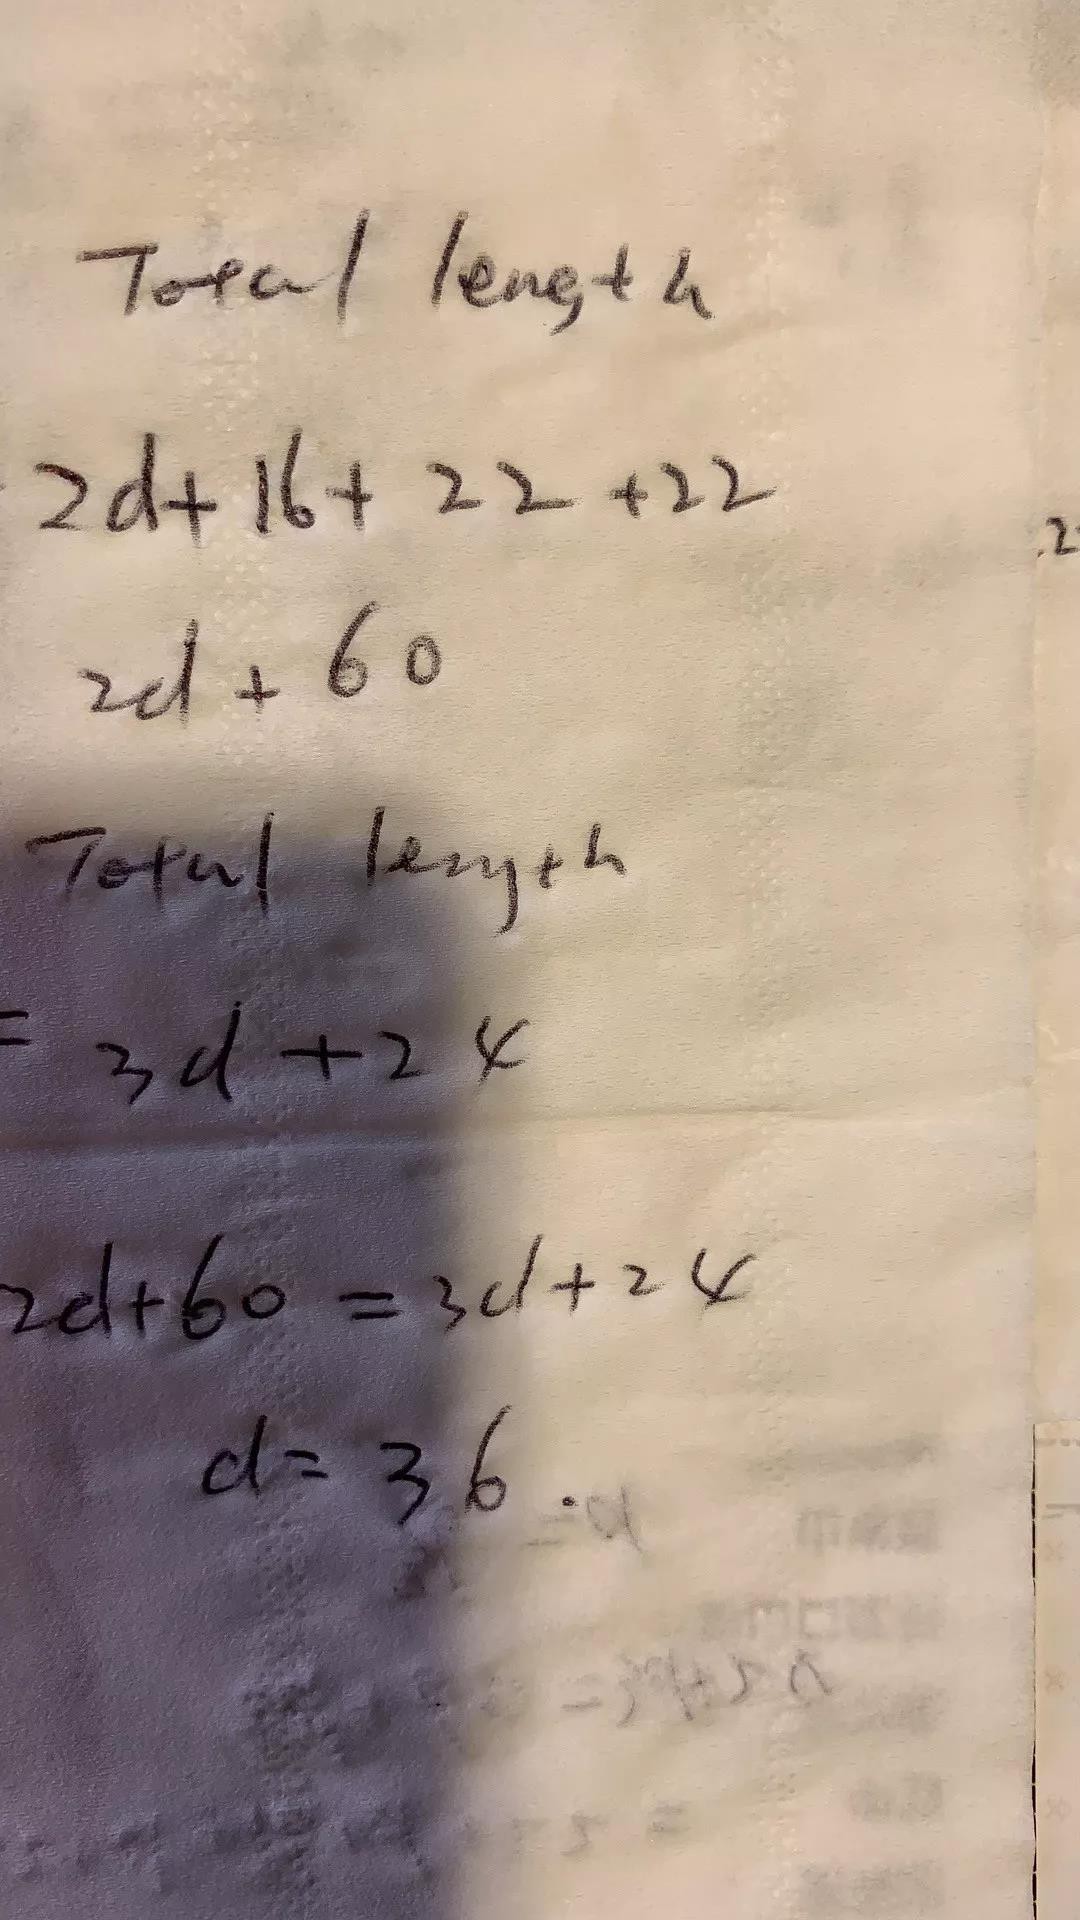 Total length
2d+16+22+22
2d+60
Total length
= 3d+24
2d+60=3d+24
d=36.